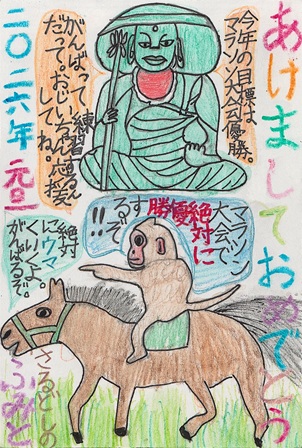 あけましておめでとう
今年の目標は、
マラソン大会優勝。
がんばって練習するん
だって。応援
してね。
二〇二六年 元旦
マラソン
大会で
絶対に
優勝
す
るぞ
!!
絶対
にウマ
くいくよ。
がんばるぞ。
さるどしの
ふみと